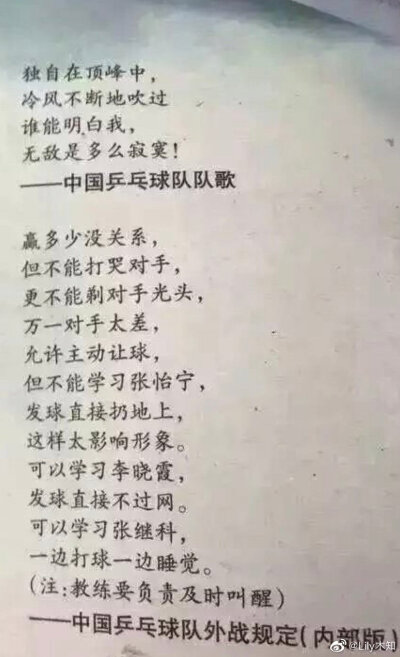 独自在顶峰中，
冷风不断地吹过
谁能明白我，
无敌是多么寂寞！
——中国乒乓球队队歌
赢多少没关系，
但不能打哭对手，
更不能剃对手光头，
万一对手太差，
允许主动让球，
但不能学习张怡宁，
发球直接扔地上，
这样太影响形象。
可以学习李晓霞，
发球直接不过网。
可以学习张继科，
一边打球一边睡觉。
(注:教练要负责及时叫醒)
——中国乒乓球队外战规定(内部版)
@Lily木知